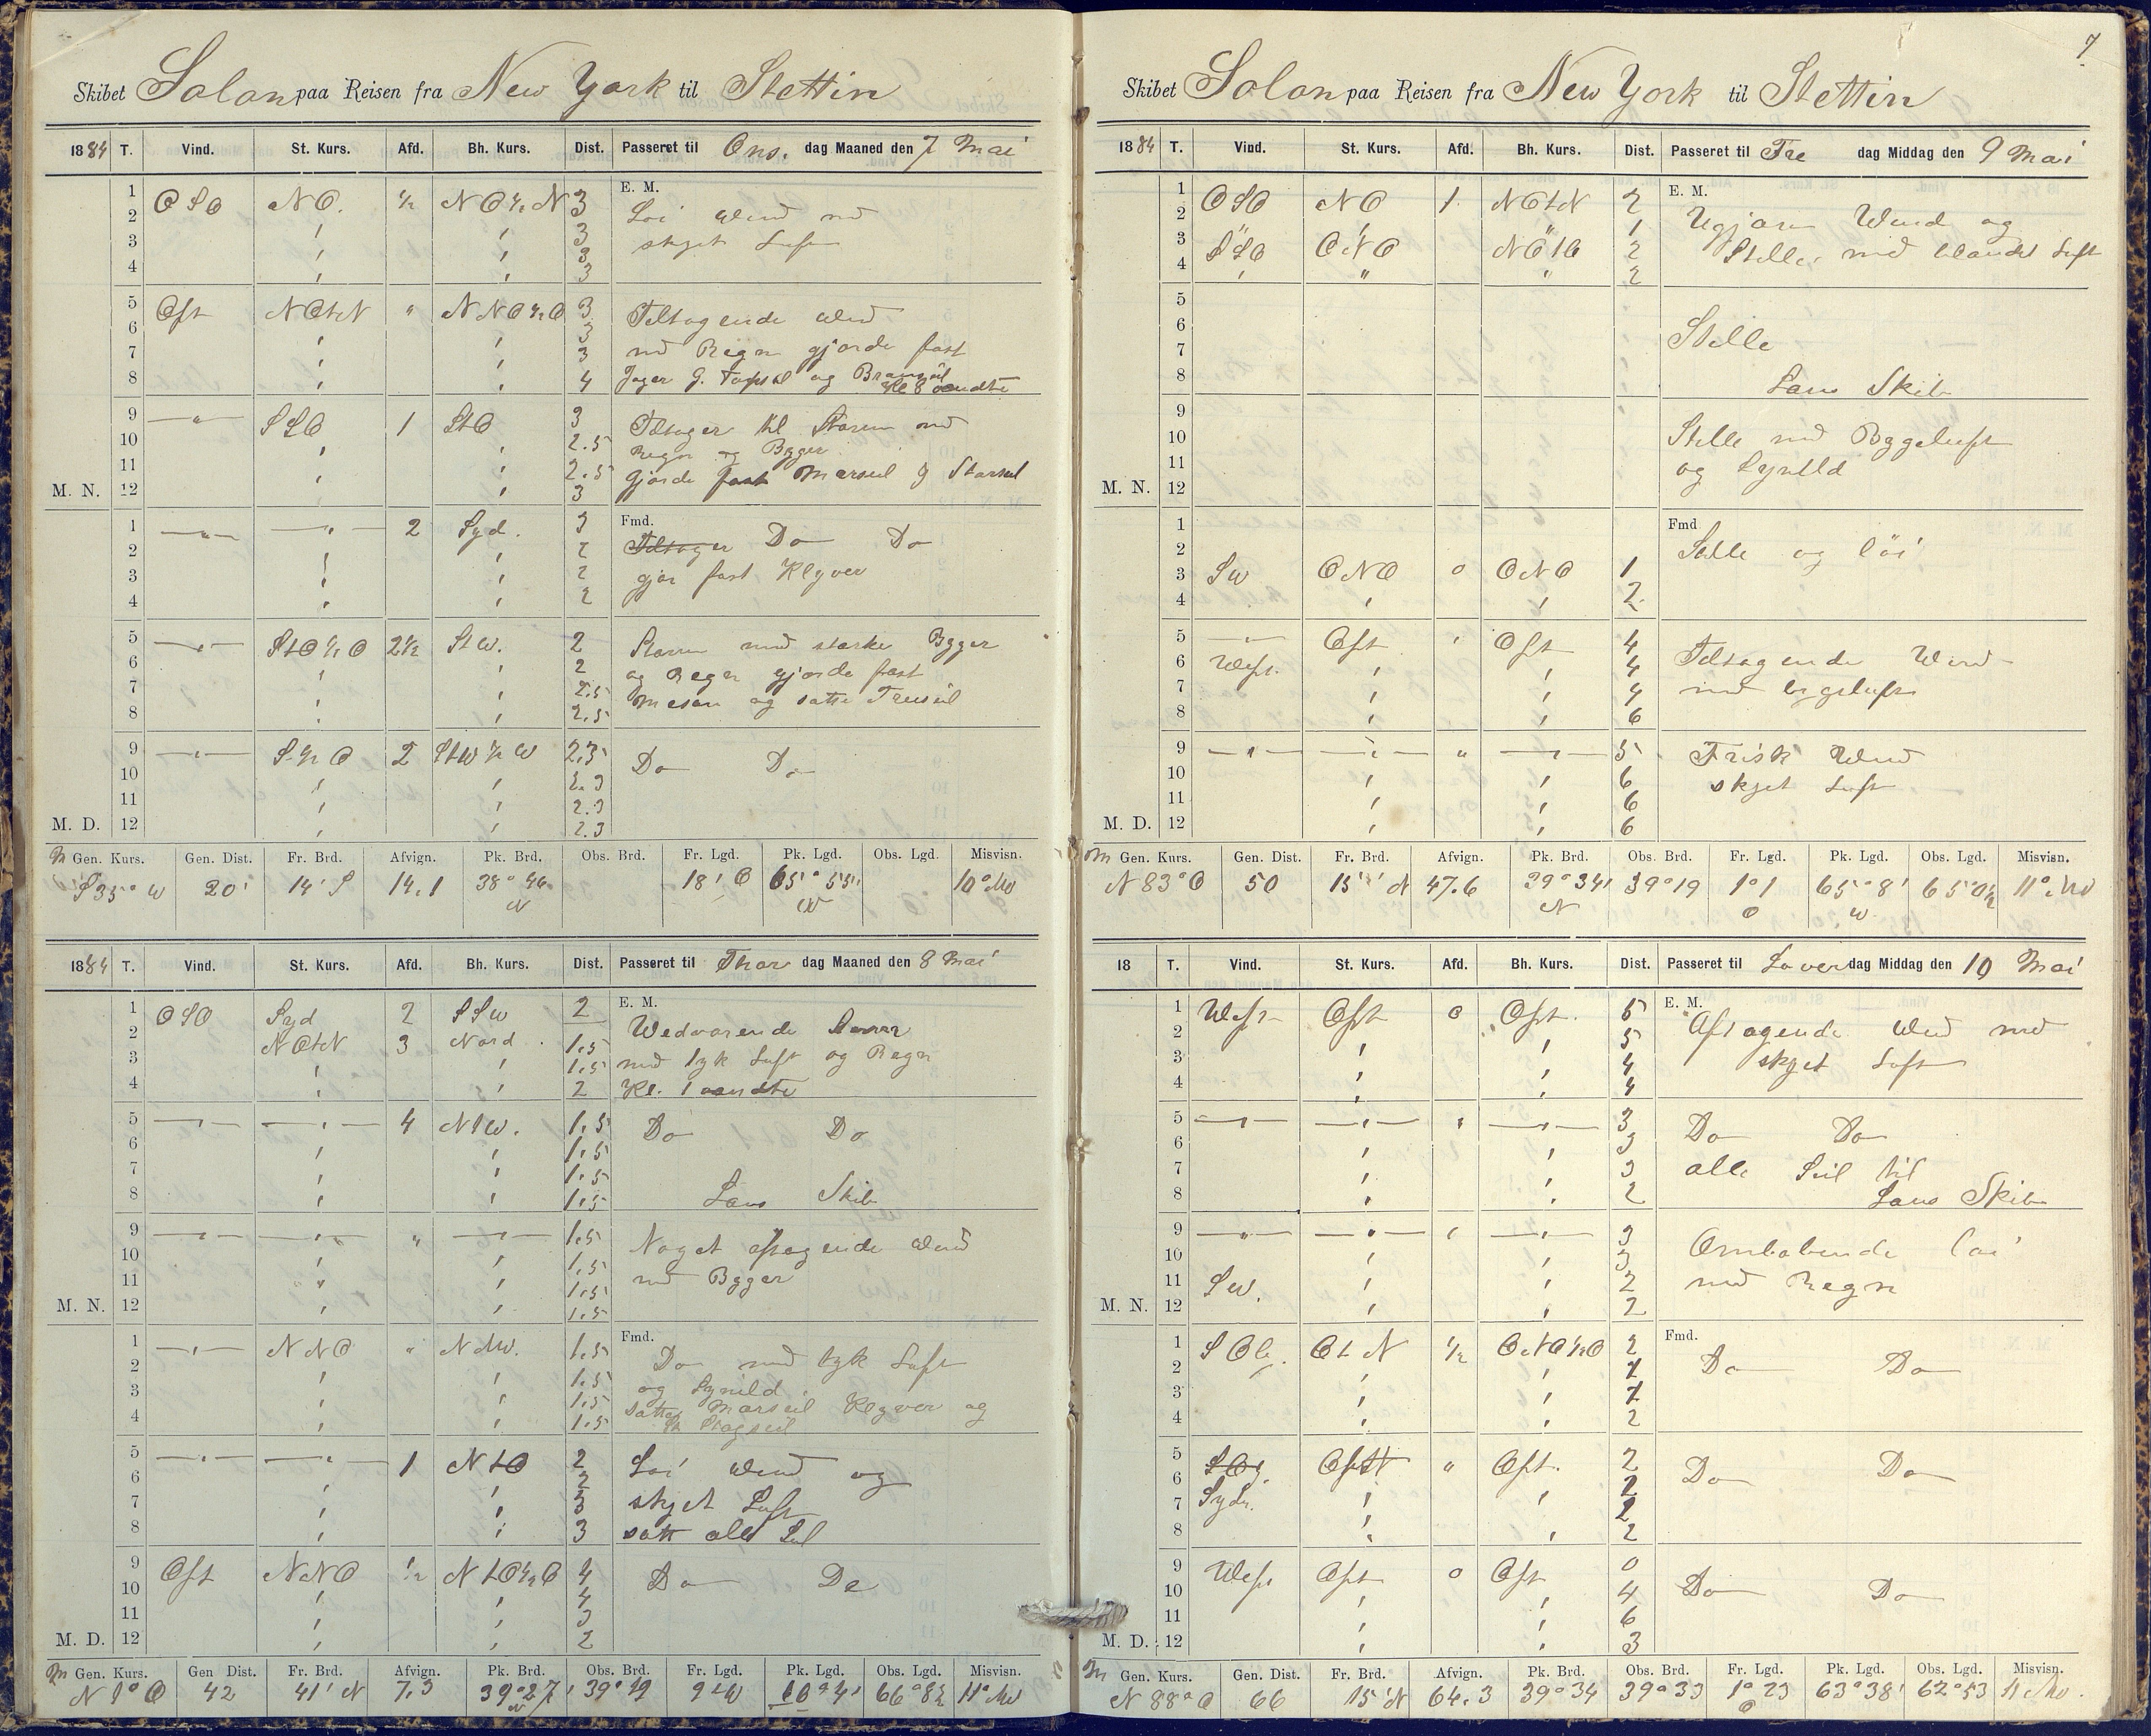 Skibet Solon paa Reisen fra New York til Stettin
1884 T. Vind. St. Kurs. Afd. Bh. Kurs. Dist. Passeret til Ons. dag Maaned den 7 Mai
E. M.
1 OSO NO. ½ NO½N 3
2 3
3 3
4 3
Löi Wind md
skyet Luft
5 Ost NOtN " NNO½O 3
6 3
7 3
8 4
Tiltagende Wind
md Regn gjorde fast
Jager G. Topseil og Bramseil
Kl 8 vendte
9 SSO 1 StO 3
10 2.5
11 2.5
M. N. 12 3
Tiltager til Storm md
Regn og Byger
Gjorde fast Marseil g Storseil
Fmd.
1 2 Syd. 3
2 2
3 2
4 2
Tiltager Do Do
gjor fast Klyver
5 StO½O 2½ StW. 2
6 2
7 2.5
8 2.5
Storm med stærke Byger
og Regn gjorde fast
Mesan og satte Treiseil
9 S½O 2 StW½W 2.3
10 2.3
11 2.3
M. D. 12 2.3
Do Do
Gen. Kurs. Gen. Dist. Fr. Brd. Afvign. Pk. Brd. Obs. Brd. Fr. Lgd. Pk. Lgd. Obs. Lgd. Misvisn.
S35°W 20' 14' S 14.1 38° 46 N 18' O 65° 55' W 10° NW
1884 T. Vind. St. Kurs. Afd. Bh. Kurs. Dist. Passeret til Thor dag Maaned den 8 Mai
E. M.
1 OSO Syd 2 SSW 2
2 NOtN 3 Nord 1.5
3 1.5
4 2
Wedvarende Storm
md tyk Luft og Regn
Kl. 1 vendte
5 4 NtW. 1.5
6 1.5
7 1.5
8 1.5
Do Do
Læns Skib
9 " 1.5
10 1.5
11 1.5
M. N. 12 1.5
Noget aftagende Wind
md Byger
Fmd.
1 NNO " NNW. 1.5
2 1.5
3 1.5
4 1.5
Do md tyk Luft
og Lynild
satte Marseil Klyver og
St Stagseil
5 1 NtO 2
6 2
7 3
8 3
Löi Wind og
skyet Luft
satt alle Seil
9 Ost NNO ½ NtO½O 4
10 4
11 3
M. D. 12 2
Do Do
Gen. Kurs. Gen Dist. Fr. Brd. Afvign. Pk. Brd. Obs. Brd. Fr. Lgd. Pk. Lgd. Obs. Lgd. Misvisn.
N 9° O 42 41' N 7.3 39° 27' N 39° 19 9' W 66° 4' 66° 8½ 11° NW
7
Skibet Solon paa Reisen fra New York til Stettin
1884 T. Vind. St. Kurs. Afd. Bh. Kurs. Dist. Passeret til Fre dag Middag den 9 Mai
E. M.
1 OSO NO 1 NOtN 2
2 " " " 1
3 SSO ONO NOtO 2
4 2
Ugjævn Wind og
Stille md blandet Luft
5
6
7
8
Stille
Læns Skib
9
10
11
M. N. 12
Stille md Bygeluft
og Lynild
Fmd
1
2
3 SW ONO 0 ONO 1
4 2
Stille og löi
5 Ost Ost 4
6 West. 4
7 4
8 6
Tiltagende Wind
md bygeluft
9 5
10 6
11 6
M. D. 12 6
Frisk Wind
skyet Luft
Gen. Kurs. Gen. Dist. Fr. Brd. Afvign. Pk. Brd. Obs. Brd. Fr. Lgd. Pk. Lgd. Obs. Lgd. Misvisn.
N 83° O 50 15' N 47.6 39° 34' N 39° 19 1° 1 O 65° 8' W 65° 0½ 11° NW
18 T. Vind. St. Kurs. Afd. Bh. Kurs. Dist. Passeret til Löver dag Middag den 10 Mai
E. M.
1 West Ost 0 Ost. 5
2 5
3 4
4 4
Aftagende Wind md
skyet Luft
5 3
6 3
7 3
8 2
Do Do
alle Seil til
Læns Skib
9 3
10 3
11 SW. 2
M. N. 12 2
Omløbende löi
md Regn
Fmd.
1 SOl. OtN ½ ONO½O 2
2 1
3 1
4 2
Do Do
5 Ost " Ost. 2
6 2
7 Sydl. 2
8 2
Do Do
9 West Ost 0 Ost 0
10 4
11 6
M. D. 12 3
Do Do
Gen. Kurs. Gen. Dist. Fr. Brd. Afvign. Pk. Brd. Obs. Brd. Fr. Lgd. Pk. Lgd. Obs. Lgd. Misvisn.
N 88° O 66 15' N 64.3 39° 34 39° 33 1° 23 O 63° 38' 62° 53 11 NW.